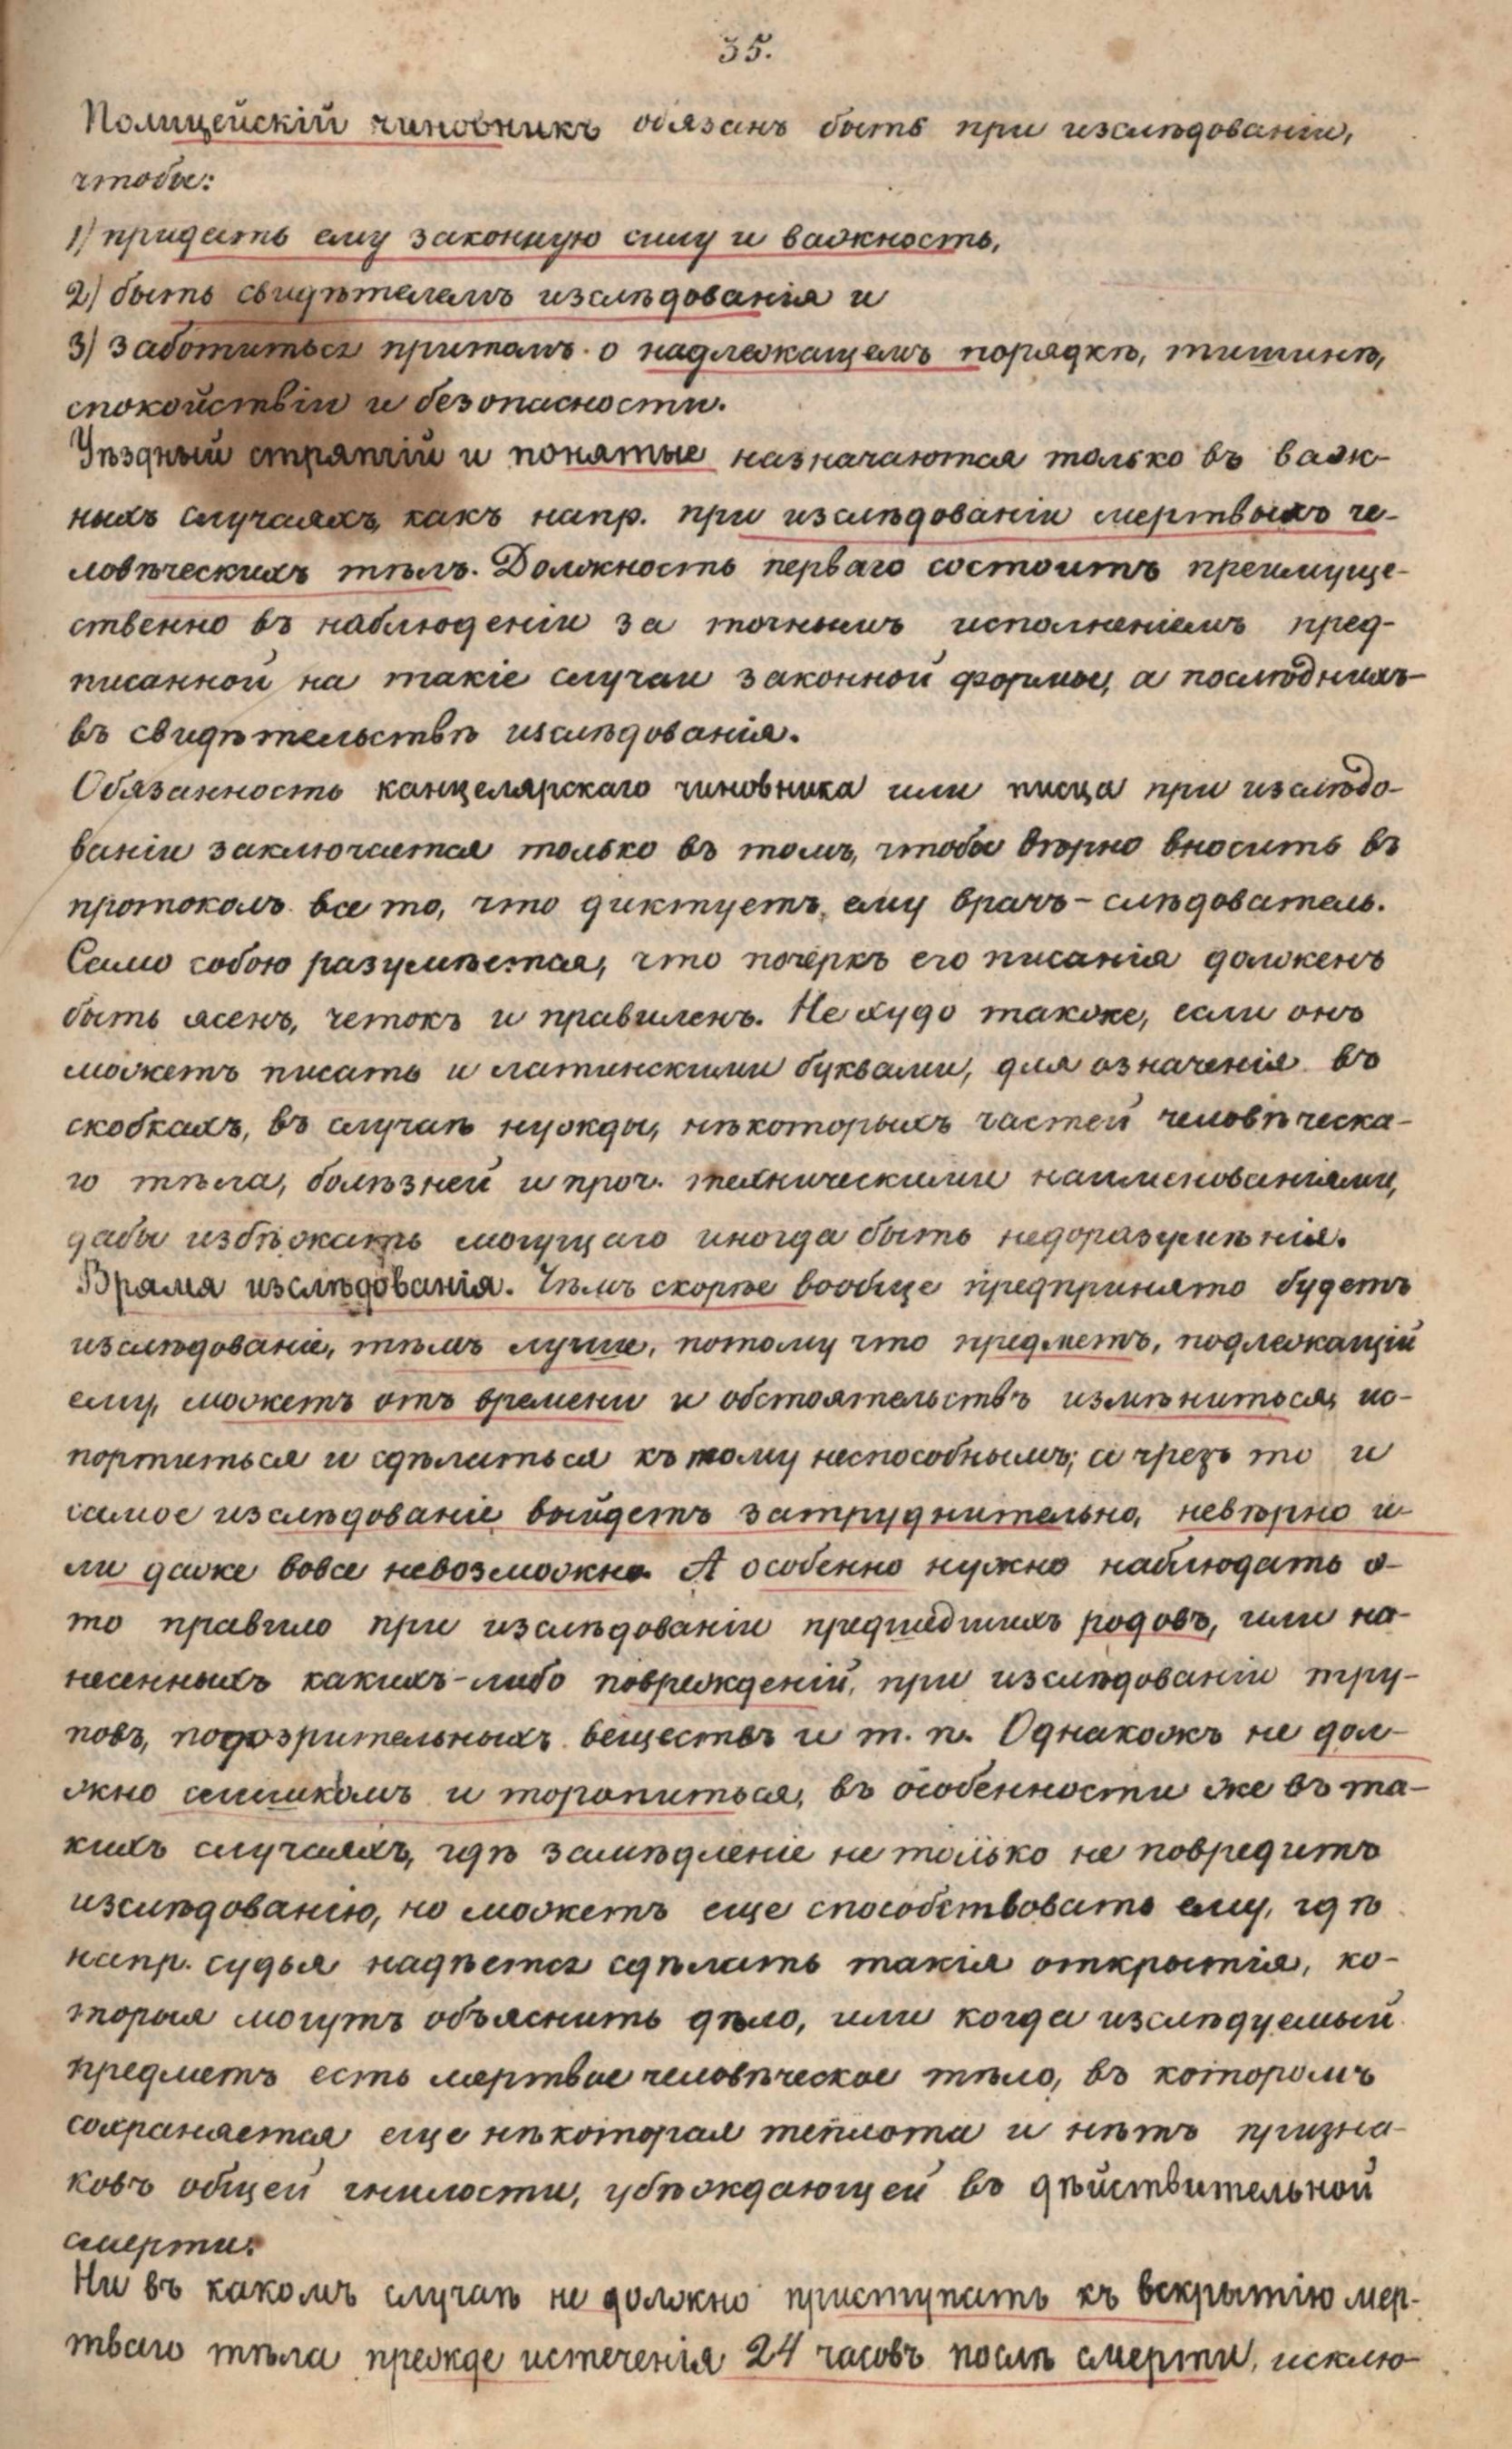 35.
Полицейскій чиновникъ обязанъ быть при изслѣдованіи,
чтобы:
1) придать ему законную силу и важность,
2) быть свидѣтелемъ изслѣдованія и
3) заботиться притомъ о надлежащемъ порядкѣ, тишинѣ,
спокойствіи и безопасности.
Уѣздный стряпчій и понятые назначаются только въ важ-
ныхъ случаяхъ, какъ напр. при изслѣдованіи мертвыхъ че-
ловѣческихъ тѣлъ. Должность перваго состоитъ преимуще-
ственно въ наблюденіи за точнымъ исполненіемъ пред-
писанной на такіе случаи законной формы, а послѣднихъ-
въ свидѣтельствѣ изслѣдованія.
Обязанность канцелярскаго чиновника или писца при изслѣдо-
ваніи заключается только въ томъ, чтобы вѣрно вносить въ
протоколъ все то, что диктуетъ ему врачъ-слѣдователь.
Само собою разумѣется, что почеркъ его писанія долженъ
быть ясенъ, четокъ и правиленъ. Не худо также, если онъ
можетъ писать и латинскими буквами, для означенія въ
скобкахъ, въ случаѣ нужды, нѣкоторыхъ частей человѣческа-
го тѣла, болѣзней и проч. техническими наименованіями,
дабы избѣжать могущаго иногда быть недоразумѣнія.
Врямя изслѣдованія. Чѣмъ скорѣе вообще предпринято будетъ
изслѣдованіе, тѣмъ лучше, потому что предметъ, подлежащій
ему, можетъ отъ времени и обстоятельствъ измѣниться, ис-
портиться и сдѣлаться къ тому неспособнымъ; а чрезъ то и
самое изслѣдованіе выйдетъ затруднительно, невѣрно и-
ли даже вовсе невозможно. А особенно нужно наблюдать э-
то правило при изслѣдованіи предшедшихъ родовъ, или на-
несенныхъ какихъ-либо поврежденій, при изслѣдованіи тру-
повъ, подозрительныхъ веществъ и т. п. Однакожъ не дол-
жно слишкомъ и торопиться, въ особенности же въ та-
кихъ случаяхъ, гдѣ замѣдленіе не только не повредитъ
изслѣдованію, но можетъ еще способствовать ему, гдѣ
напр. судья надѣется сдѣлать такія открытія, ко-
торыя могутъ объяснить дѣло, или когда изслѣдуемый
предметъ есть мертвое человѣческое тѣло, въ которомъ
сохраняется еще нѣкоторая теплота и нѣтъ призна-
ковъ общей гнилости, убѣждающей въ дѣйствительной
смерти.
Ни въ какомъ случаѣ не должно приступать къ вскрытію мер-
тваго тѣла прежде истеченія 24 часовъ послѣ смерти, исклю-